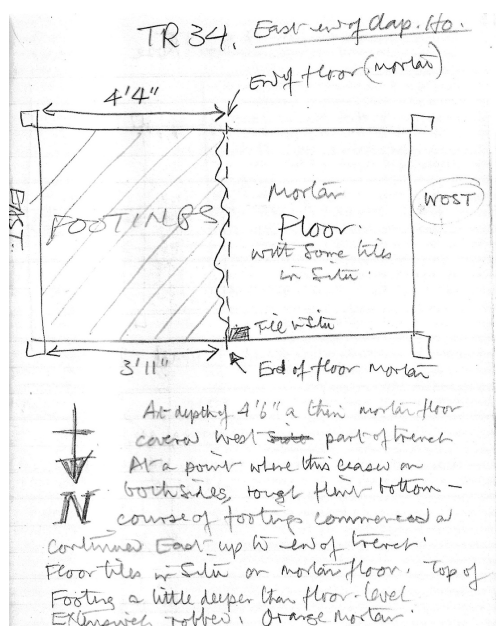 TR 34. East end of Chap. Ho.
End of floor (mortar)
4'4"
EAST.
FOOTINGS
Mortar
Floor.
with some tiles
in situ.
WEST
Tile in situ
3'11"
End of floor mortar
At depth of 4'6" a thin mortar floor
covered west side part of trench
At a point where this ceased on
both sides, rough flint bottom -
course of footings commenced &
continued East up to end of trench.
N
Floor tiles in situ on mortar floor. Top of
Footing a little deeper than floor-level
Extensively robbed. Orange mortar.